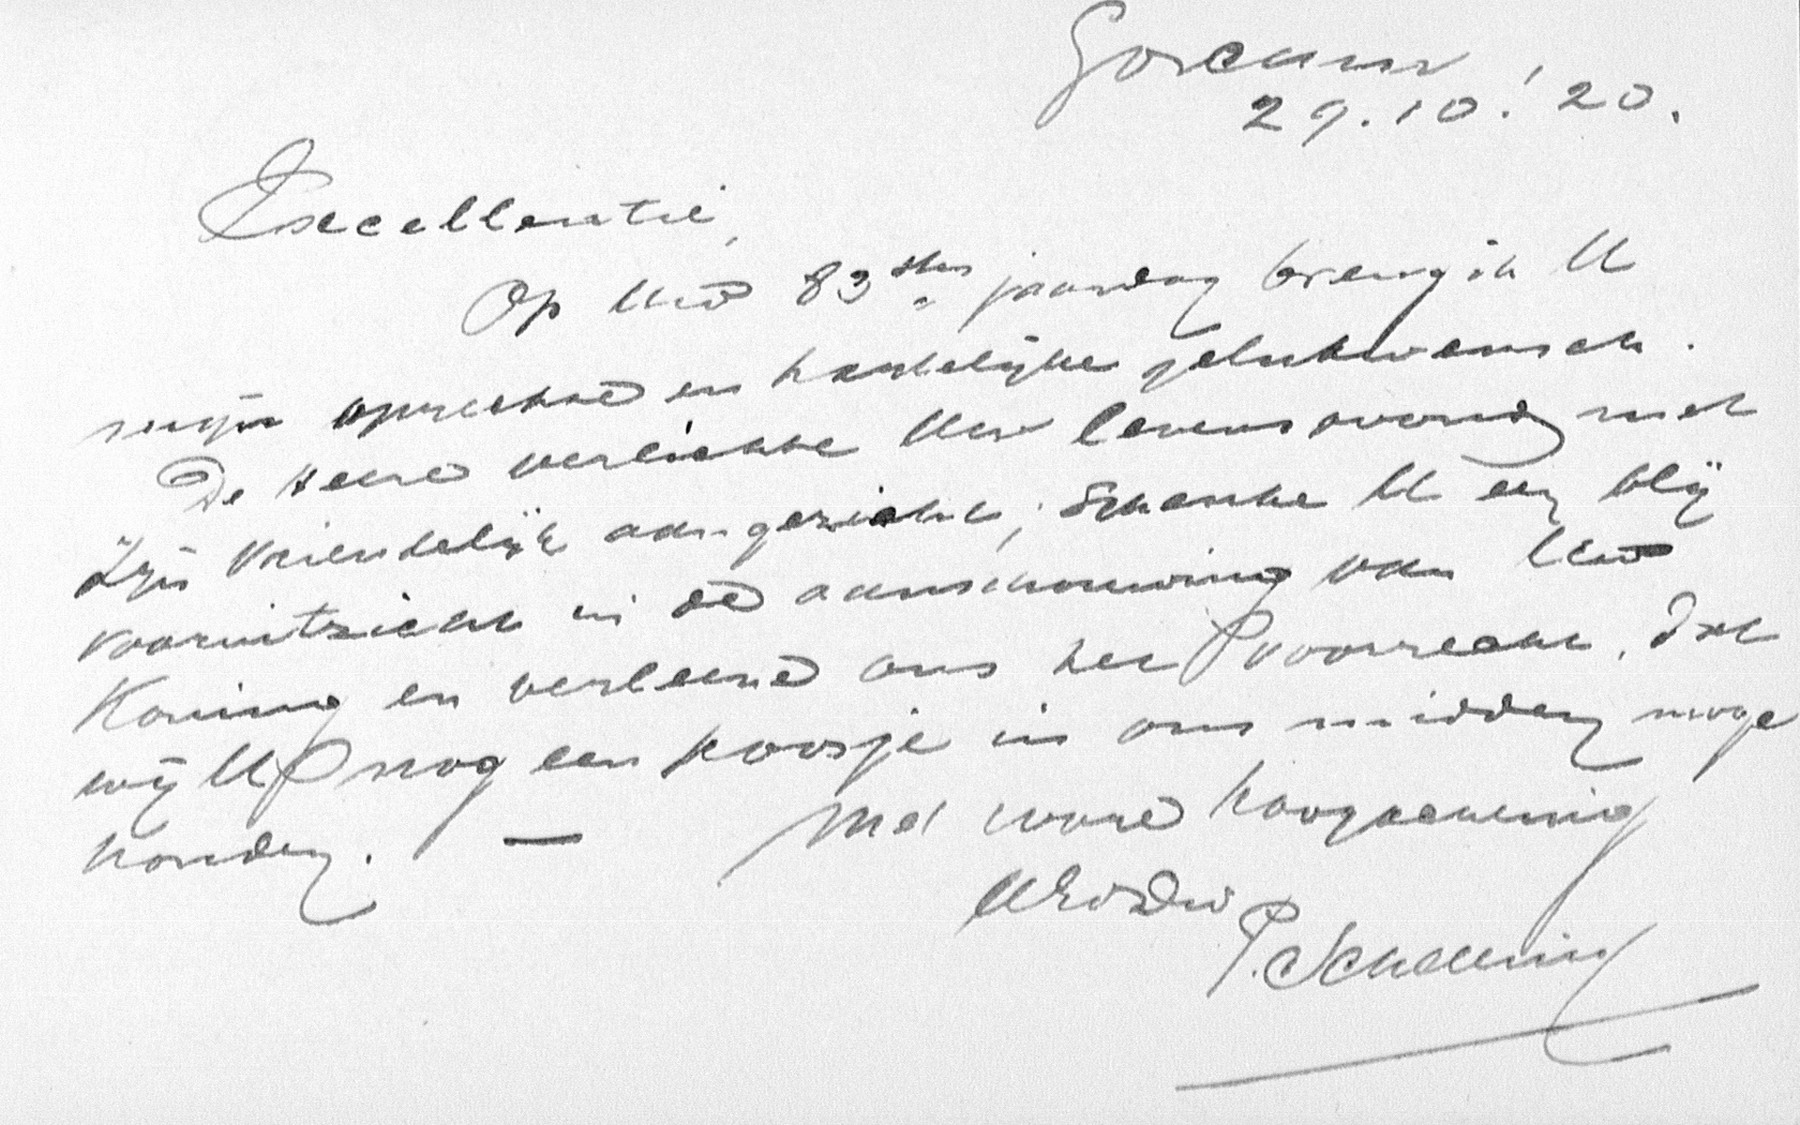 Gorcum
29.10.'20.
Excellentie,
Op Uw 83sten jaardag breng ik U
mijn oprechte en hartelijke gelukwensch.
De Heere verlichte Uw levensavond met
Zijn vriendelijk aangezicht; schenke U een blij
vooruitzicht in de aanschouwing van Uw
Koning en verleene ons het voorrecht, dat
wij U nog een poosje in ons midden moge
houden. — Met ware hoogachting
UEwDw
P. Schelling